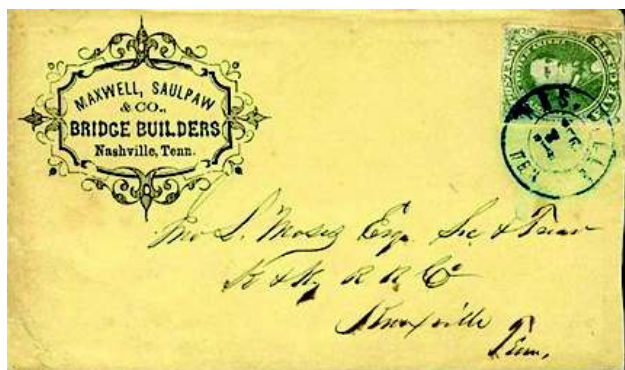 MAXWELL, SAULPAW
& CO.,
BRIDGE BUILDERS
Nashville, Tenn.
Jno L. Moses Esqr. Sec & Treas
K & Ky R R Co
Knoxville
Tenn,